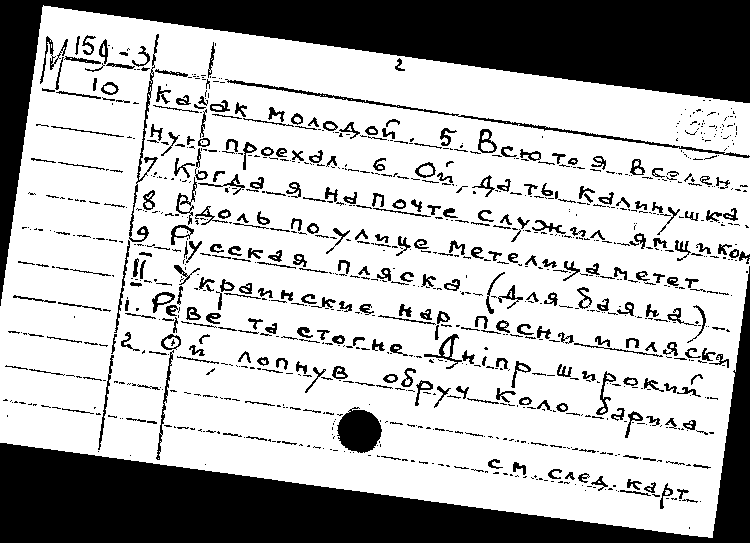 2
М 159-3
10
Казак молодой. 5. Всю то я вселен=
ную проехал. 6. Ой, да ты калинушка.
7. Когда я на почте служил ямщиком
8 Вдоль по улице метелица метет
9 Русская пляска (для баяна.)
II. Украинские нар. песни и пляски
1. Реве та стогне Днiпр широкий
2. Ой, лопнув обруч коло барила
см. след. карт